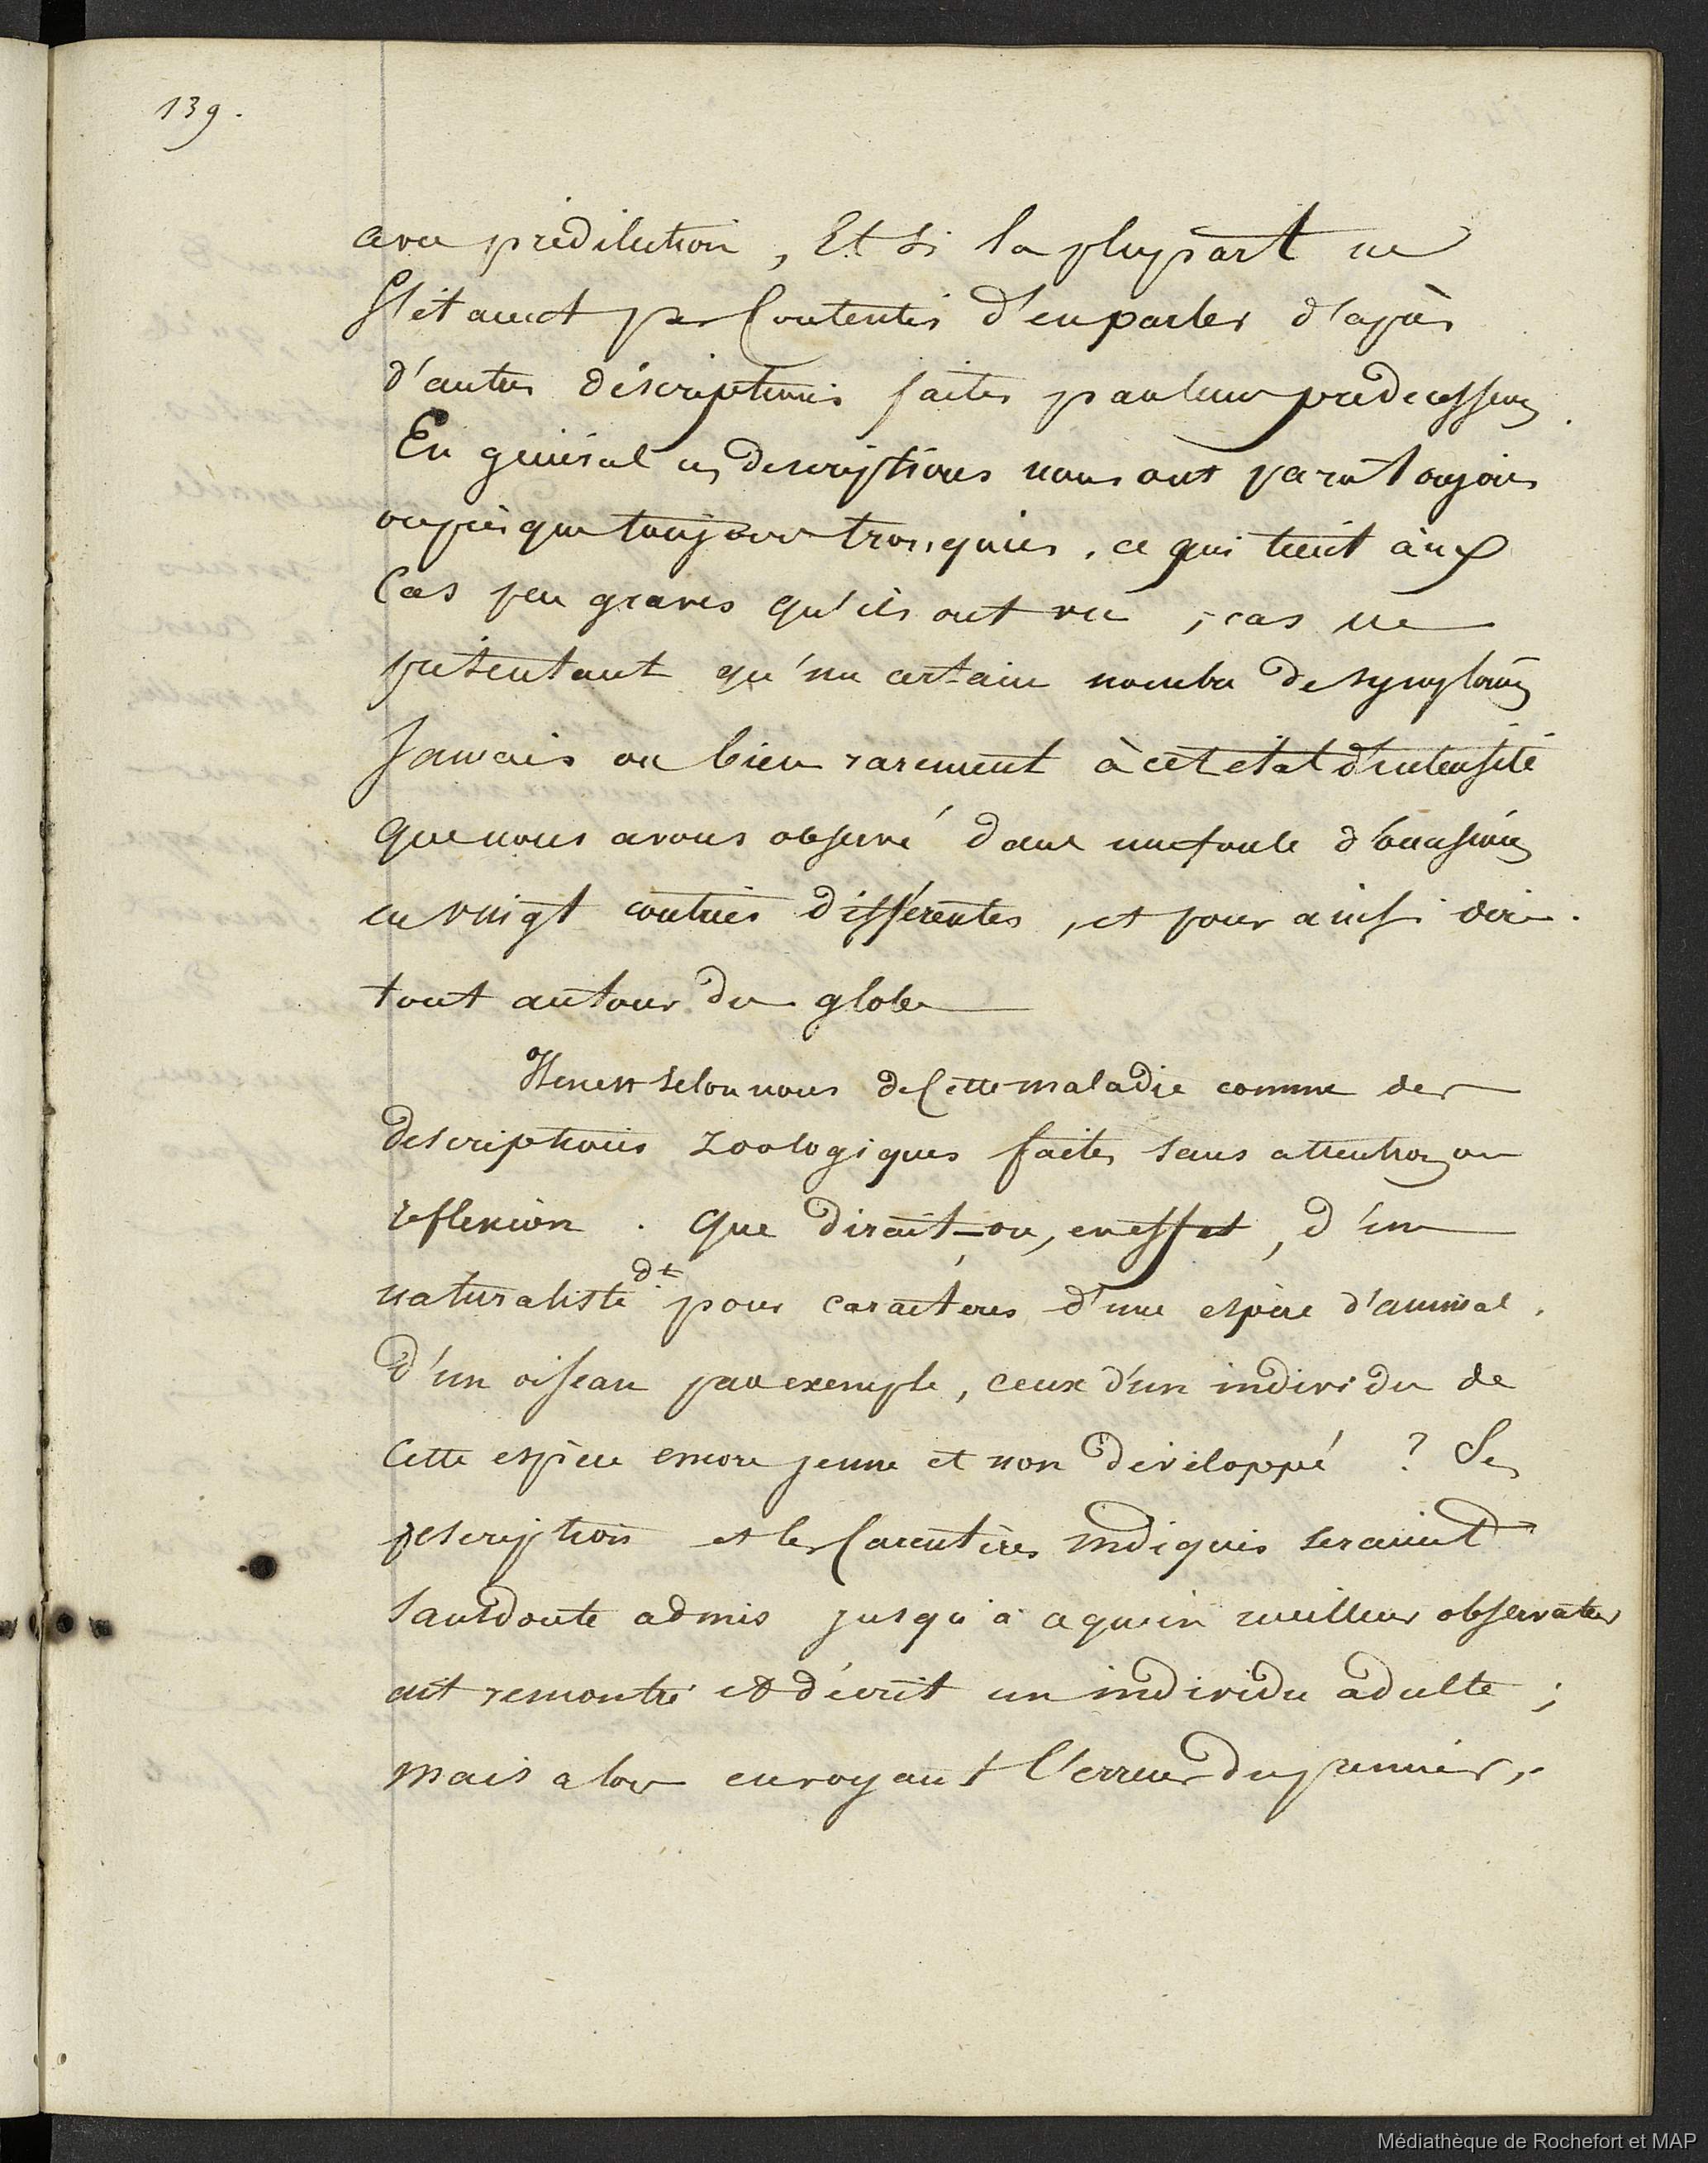 139.
avec prédilection, Et si la plupart ne
s'étaient pas contentés d'en parler d'après
d'autres déscriptions faites par leurs prédecesseurs.
En général ces descriptions nous ont paru toujours
ou présque toujours tronquées, ce qui tient aux
Cas peu graves qu'ils ont vu, cas ne
présentant qu'un certain nombre de symptômes
Jamais ou bien rarement à cet état d'intensité
que nous avons observé dans une foule d'occasions
en vingt contrées différentes, et pour ainsi dire.
tout autour du globe
Il en est selon nous de Cette maladie comme des
descriptions zoologiques faites sans attention ou
reflexion. Que dirait-on, en effet, d'un
naturaliste dt pour caractères d'une espèce d'animal,
d'un oiseau par exemple, ceux d'un individu de
Cette espèce encore jeune et non dévéloppé ? Se
description et les Caractères indiqués seraient
Sans doute admis jusqu'à ce qu'un meilleur observateur
ait remontré et décrit un individu adulte ;
Mais alors en voyant l'erreur du premier,
Médiathèque de Rochefort et MAP